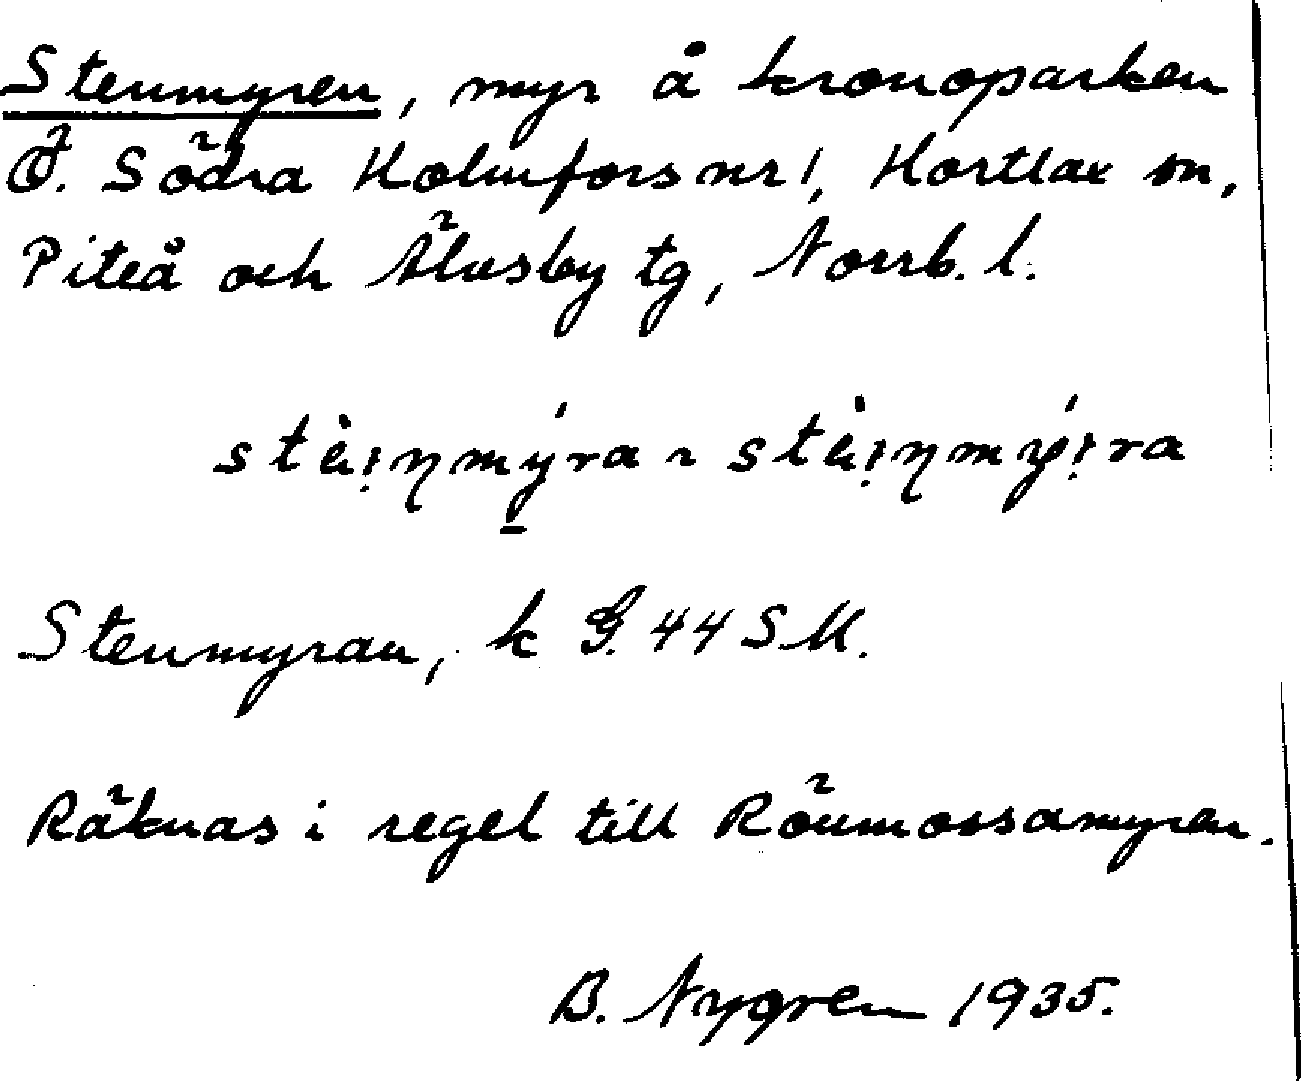 Stenmyren, myr å kronoparken
Ö. Södra Holmfors nr 1, Hortlax sn,
Piteå och Älvsby tg, Norrb. l.
Stenmyran, k G. 44 SM.
Räknas i regel till Rönmossamyren.
B. Nygren 1935.